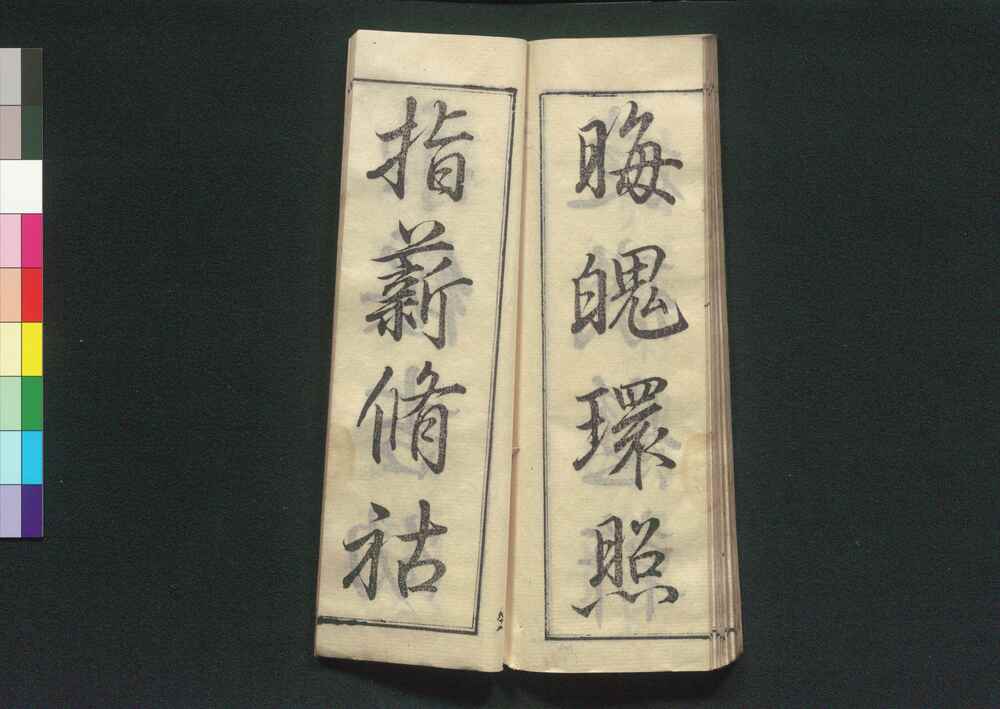 晦魄環照
指薪脩祜